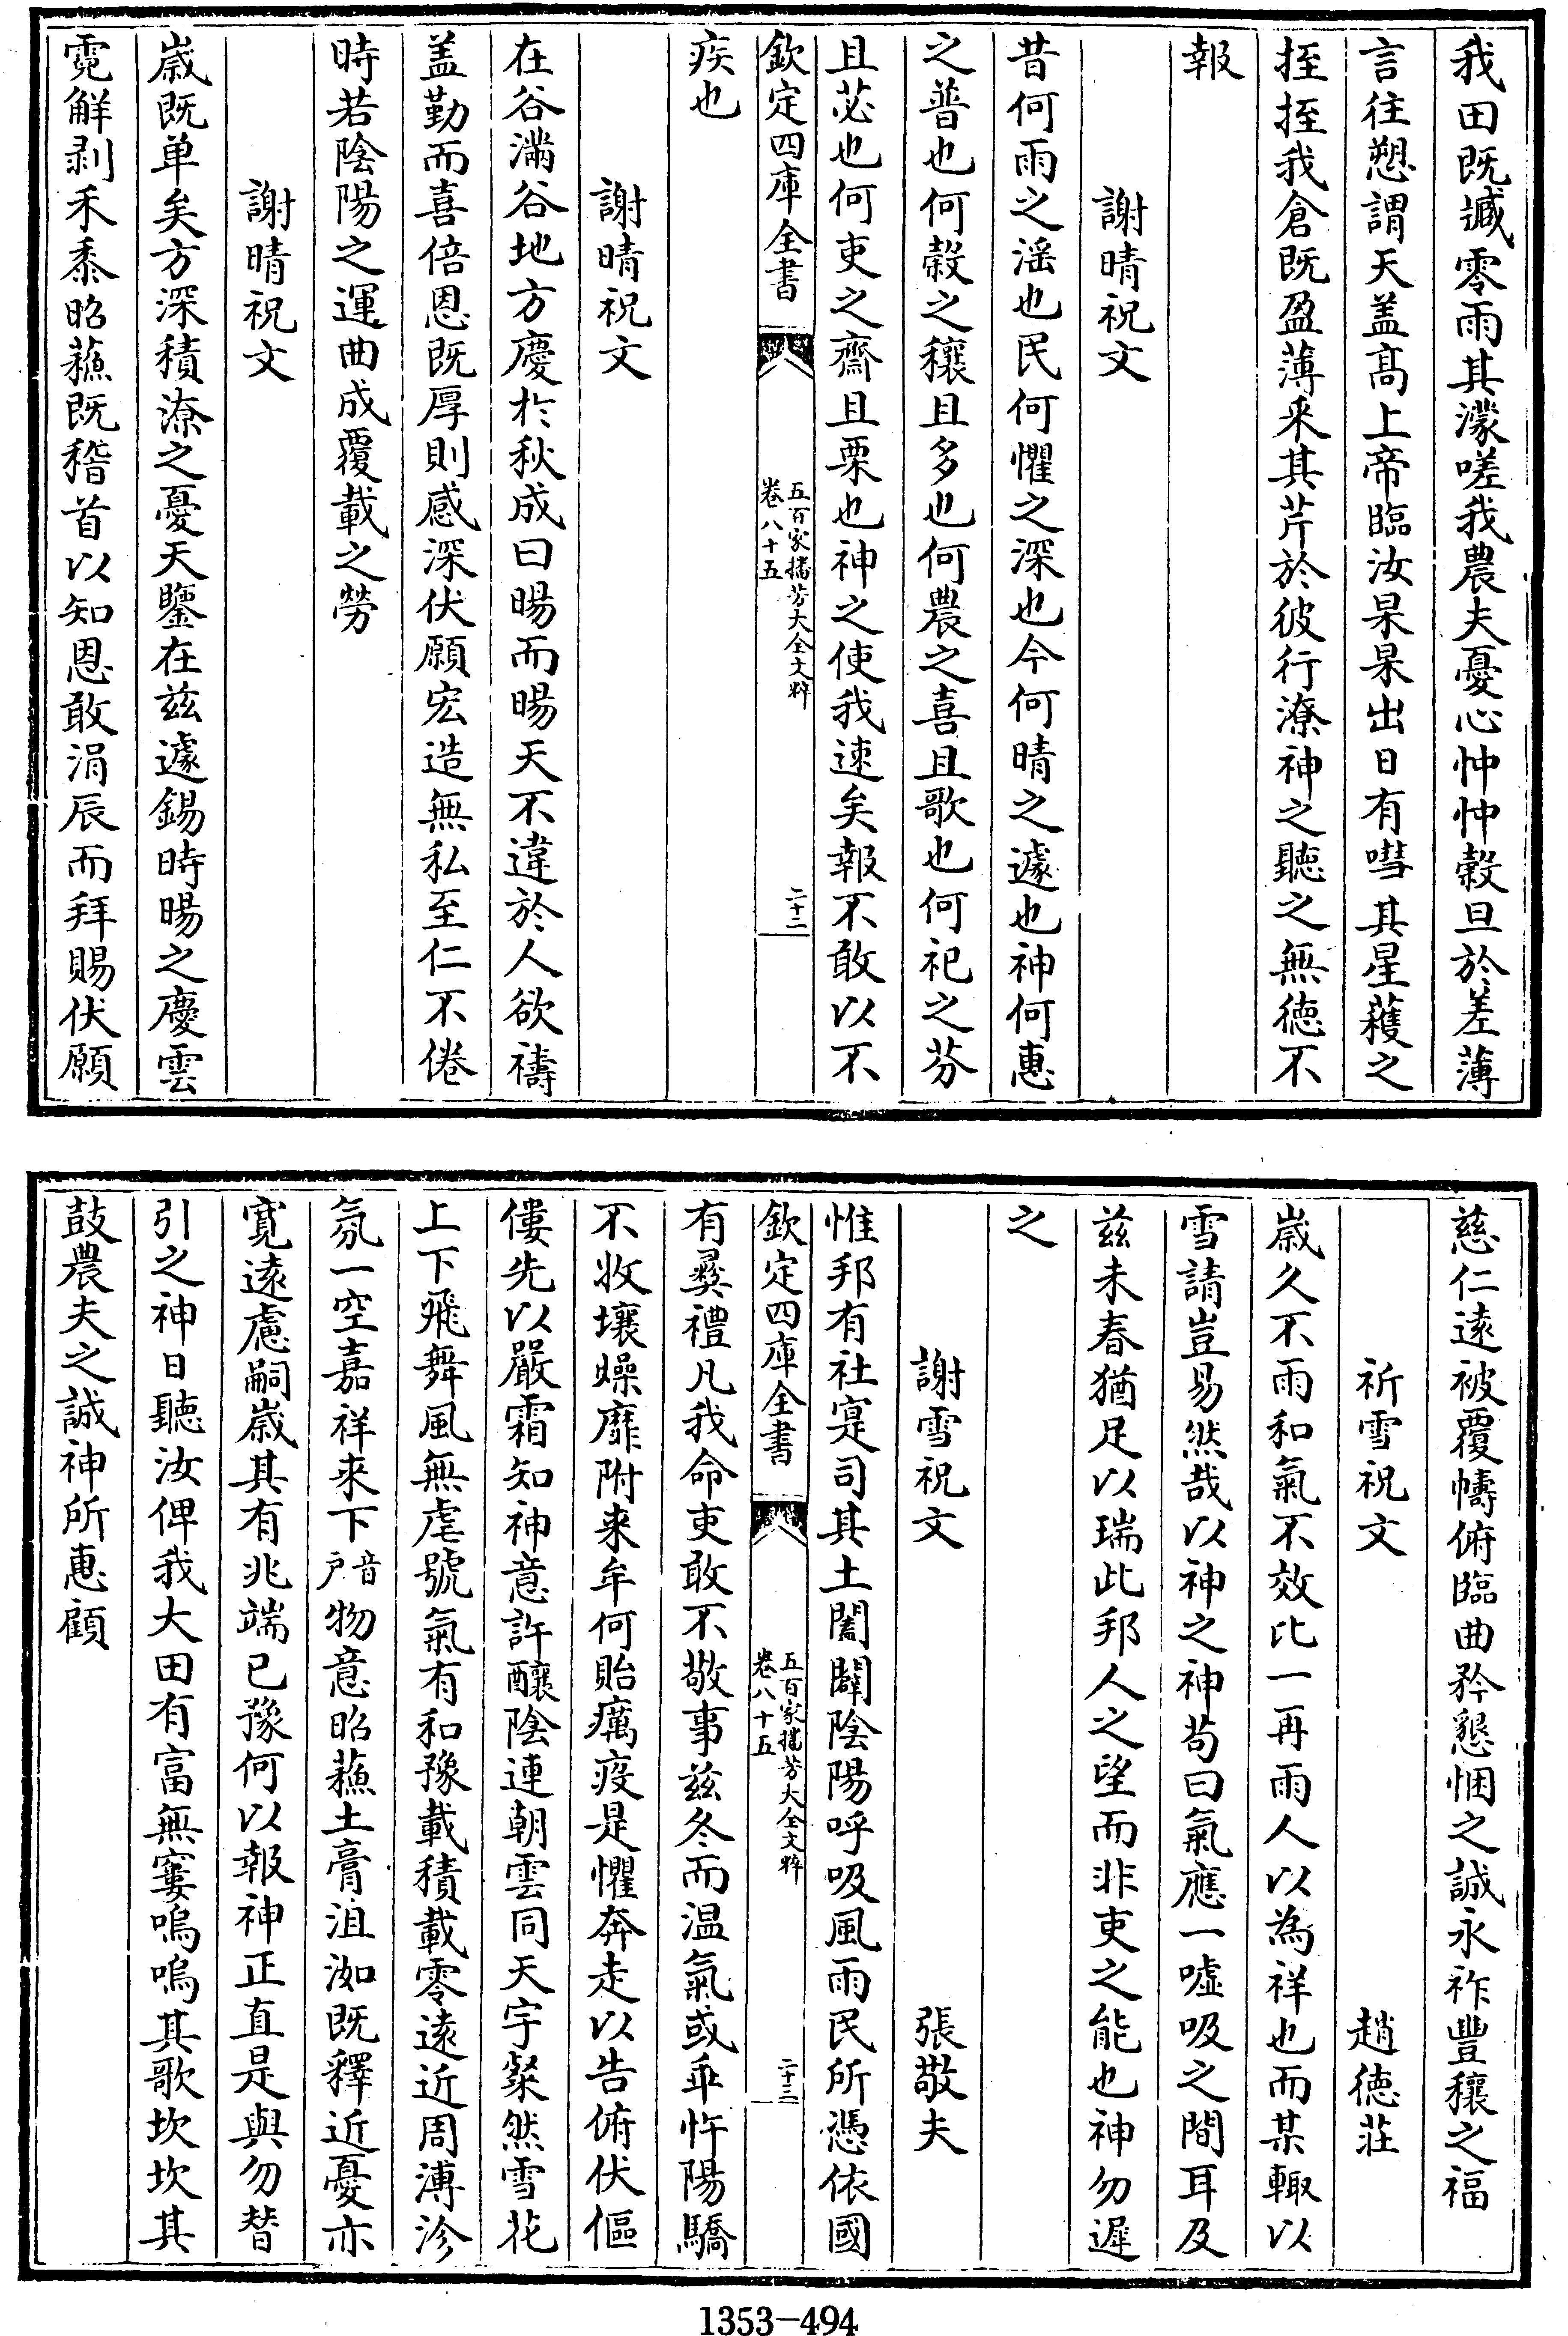 我田既臧零雨其濛嗟我農夫憂心忡忡榖旦於差薄
言往愬謂天盖髙上帝臨汝杲杲出日有嘒其星蓷之
挃挃我倉既盈薄采其芹於彼行潦神之聽之無徳不
報
謝晴祝文
昔何雨之滛也民何懼之深也今何晴之遽也神何惠
之普也何榖之穰且多也何農之喜且歌也何祀之芬
且苾也何吏之齋且栗也神之使我速矣報不敢以不
欽定四庫全書
五百家播芳大全文粹
卷八十五
二十二
疾也
謝晴祝文
在谷滿谷地方慶於秋成曰暘而暘天不違於人欲禱
盖勤而喜倍恩既厚則感深伏願宏造無私至仁不倦
時若陰陽之運曲成覆載之勞
謝晴祝文
嵗既单矣方深積潦之憂天鑒在兹遽錫時暘之慶雲
霓觧剥禾黍昭蘓既稽首以知恩敢涓辰而拜賜伏願
慈仁逺被覆幬俯臨曲矜懇悃之誠永祚豐穰之福
祈雪祝文 趙徳莊
嵗久不雨和氣不效比一再雨人以為祥也而某輙以
雪請豈易然哉以神之神苟曰氣應一嘘吸之間耳及
兹未春猶足以瑞此邦人之望而非吏之能也神勿遲
之
謝雪祝文 張敬夫
惟邦有社寔司其土闔闢陰陽呼吸風雨民所憑依國
欽定四庫全書
五百家播芳大全文粹
卷八十五
二十三
有彛禮凡我命吏敢不敬事兹冬而温氣或乖忤陽驕
不收壤燥靡附来牟何貽癘疫是懼奔走以告俯伏傴
僂先以嚴霜知神意許釀陰連朝雲同天宇粲然雪花
上下飛舞風無虐號氣有和豫載積載零逺近周溥沴
氛一空嘉祥来下音户物意昭蘓土膏沮洳既釋近憂亦
寛逺慮嗣嵗其有兆端已豫何以報神正直是與勿替
引之神日聽汝俾我大田有富無窶嗚嗚其歌坎坎其
鼓農夫之誠神所惠顧
1353-494